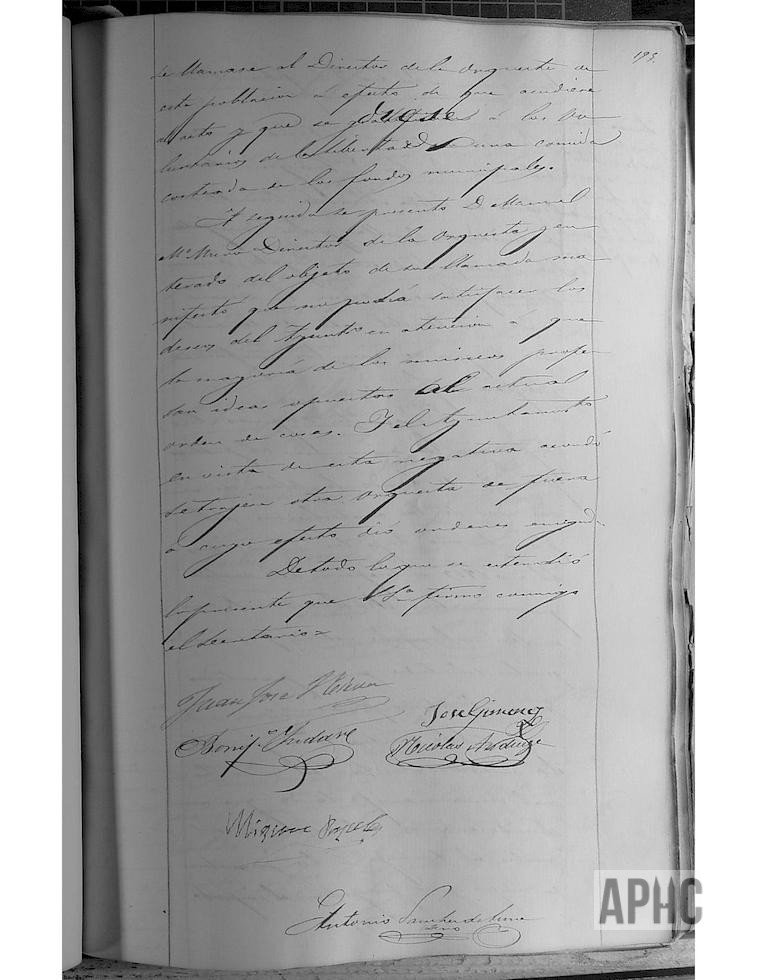 195.
se llamase al Director de la Orquesta de
esta poblacion á efecto de que acudiera
al acto y que se á los Vo-
luntarios de la libertad una comida
costeada de los fondos municipales.
A seguida se presentó D. Manuel
Mª Director de la Orquesta y en-
terado del objeto de su llamada ma-
nifestó que no podia satisfacer los
deseos del Ayunto. en atencion á que
la mayoria de los musicos profe-
san ideas opuestas al actual
orden de cosas. Y el Ayuntamiento
en vista de esta negativa acordó
se trajera otra Orquesta de fuera
á cuyo efecto dió ordenes
De todo lo que se estendió
la presente que firmo conmigo
el Secretario=
Juan Jose
Jose Gimenez
Bonif.º
Nicolas
Antonio Sanchez de
APHC